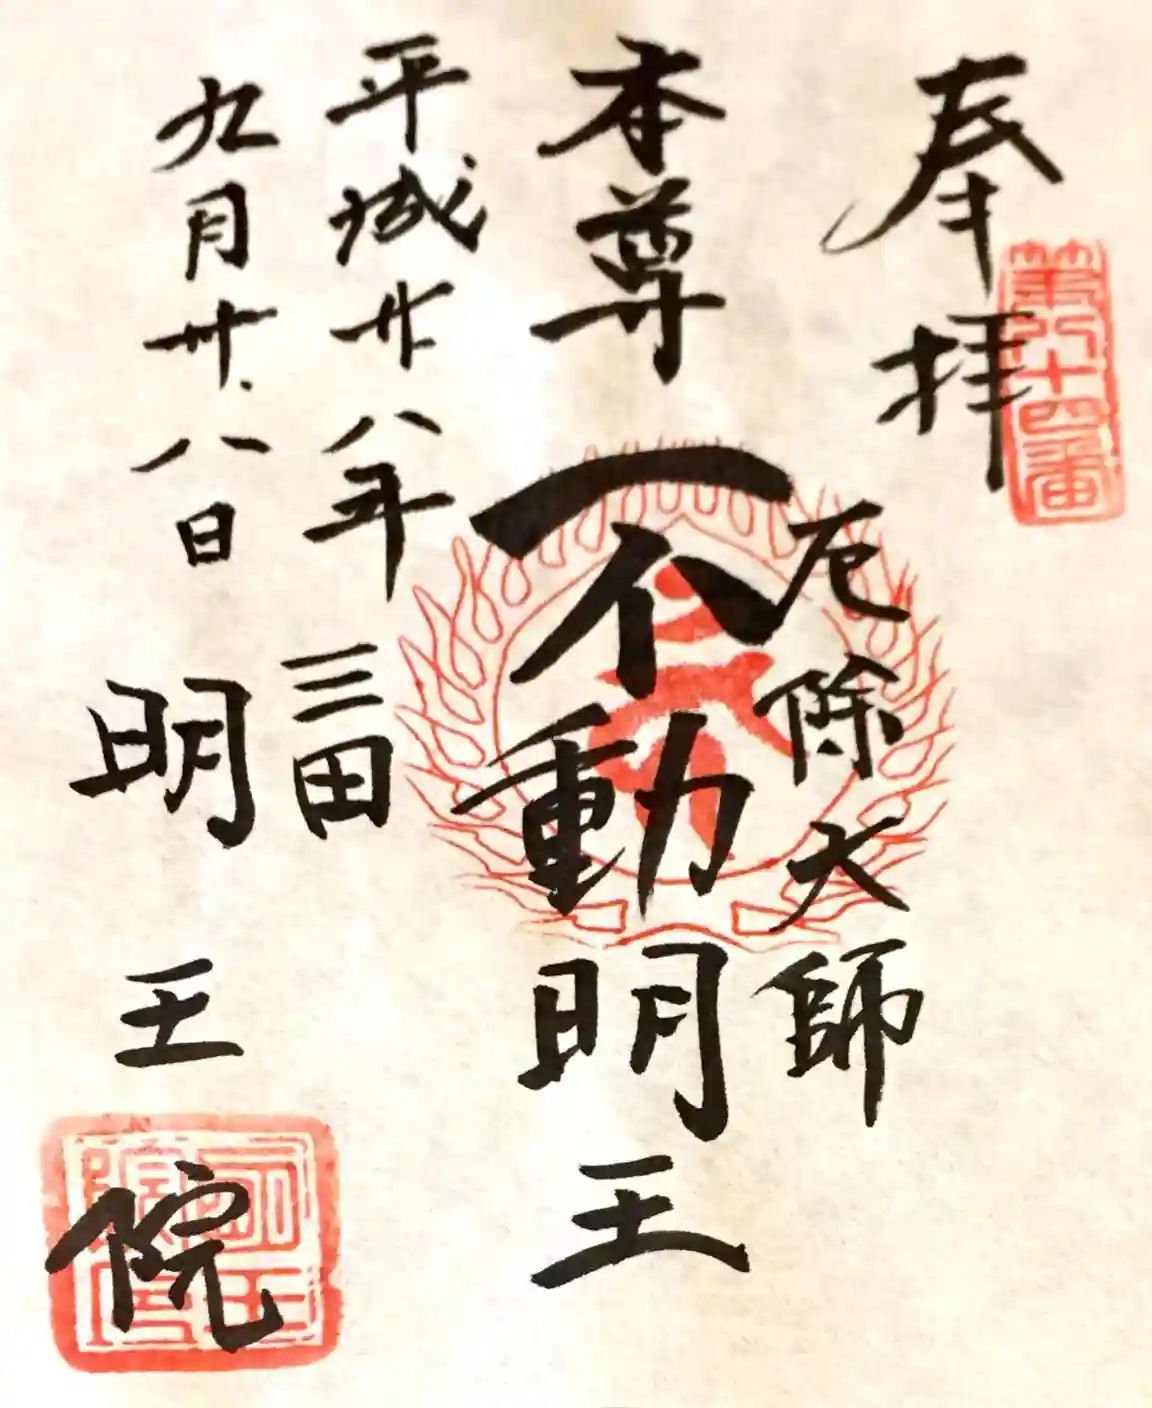 奉拝
第八十四番
厄除大師
本尊
不動明王
平城廿八年
三田
九月廿八日
明王院
明王院印